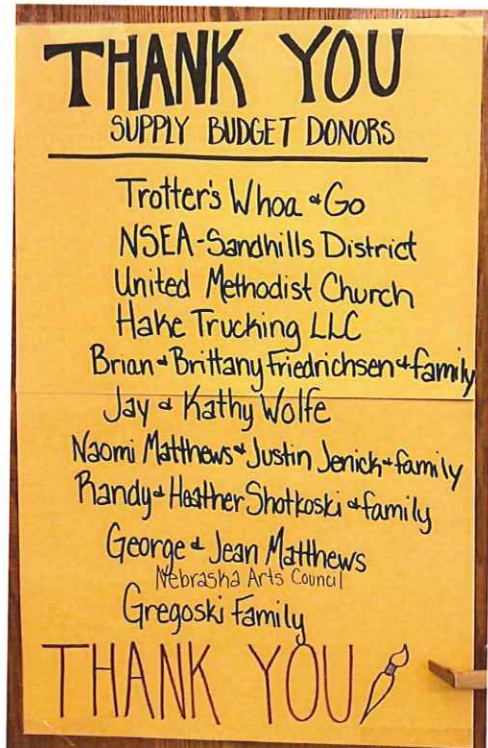 THANK YOU
SUPPLY BUDGET DONORS
Trotter's Whoa & Go
NSEA-Sandhills District
United Methodist Church
Hake Trucking LLC
Brian & Brittany Friedrichsen & family
Jay & Kathy Wolfe
Naomi Matthews & Justin Jenick & family
Randy & Heather Shotkoski & family
George & Jean Matthews
Nebraska Arts Council
Gregoski Family
THANK YOU